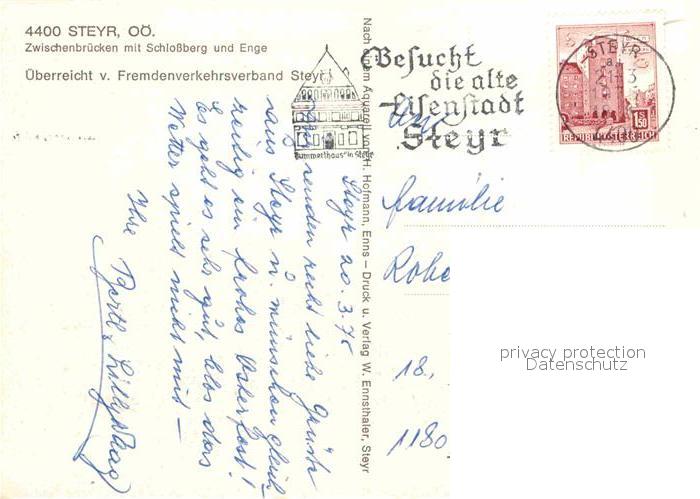 4400 STEYR, OÖ.
Zwischenbrücken mit Schloßberg und Enge
Überreicht v. Fremdenverkehrsverband Steyr
Besucht
die alte
Eisenstadt
Steyr
"Bummerlhaus" in Steyr
STEYR
REPUBLIK ÖSTERREICH
S 1.50
Nach einem Aquarell von H. Hofmann, Enns – Druck u. Verlag W. Ennsthaler, Steyr
Steyr 20.3.75
senden recht liebe Grüße
aus Steyr u. wünschen gleich-
zeitig ein frohes Osterfest!
Es geht es sehr gut, blos das
Wetter spielt nicht mit –
Ihre
Familie
18.
1180
privacy protection
Datenschutz